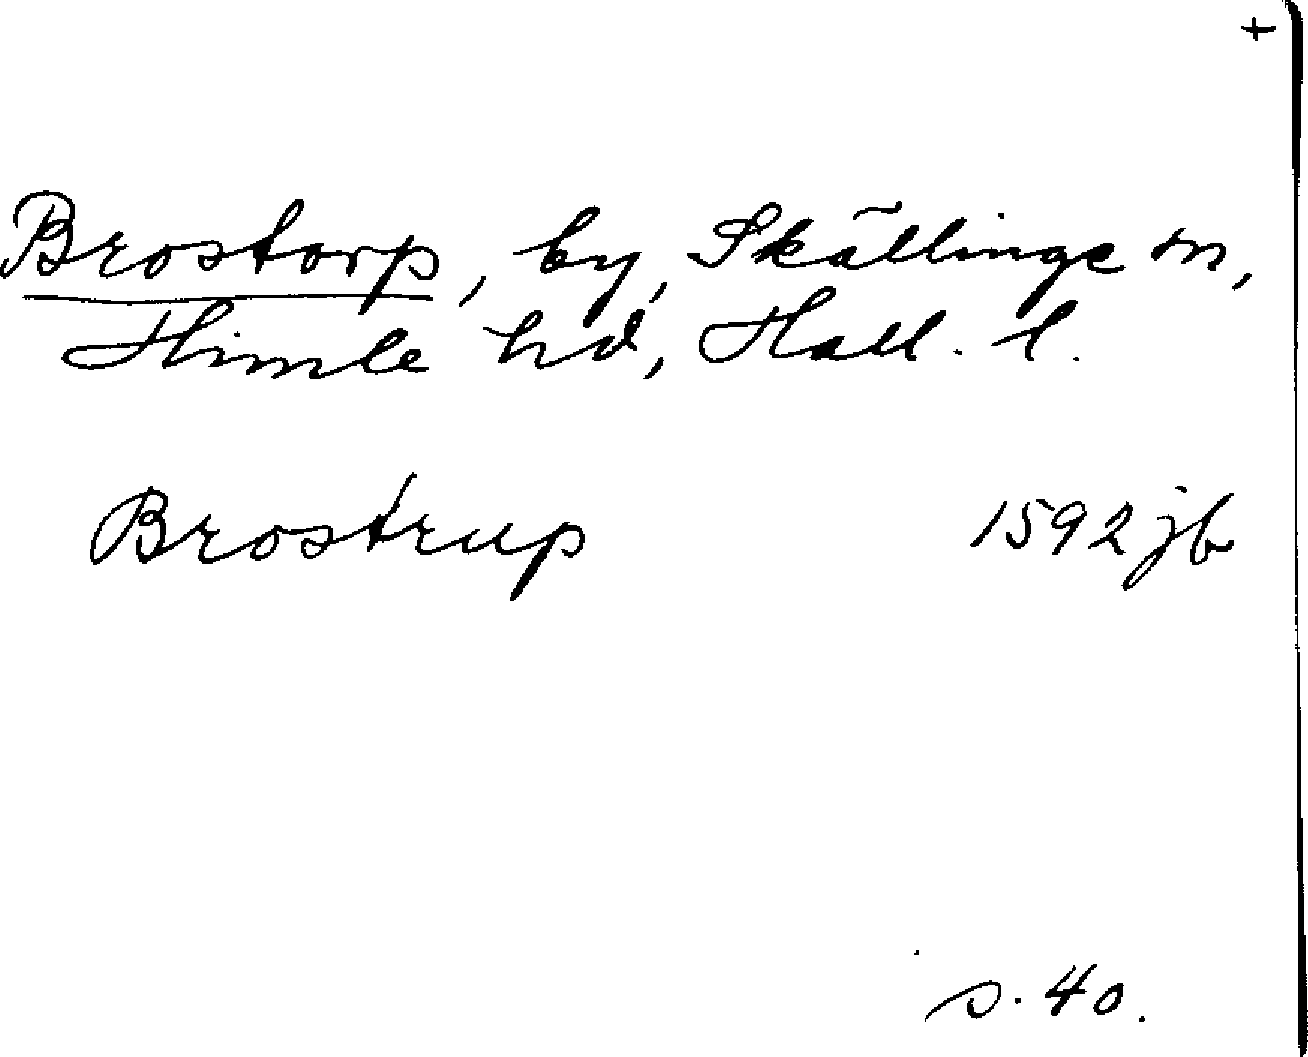 +
Brostorp, by, Skällinge sn,
Himle hd, Hall. l.
Brostrup 1592 jb
s. 40.